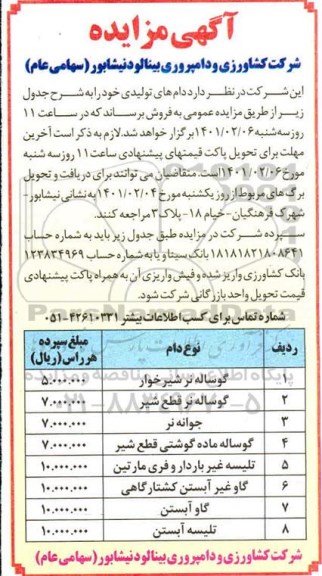 آگهی مزایده
شرکت کشاورزی و دامپروری بینالود نیشابور (سهامی عام)
این شرکت در نظر دارد دام های تولیدی خود را به شرح جدول
زیر از طریق مزایده عمومی به فروش برساند که در ساعت ۱۱
روز سه شنبه ۱۴۰۱/۰۲/۰۶ برگزار خواهد شد. لازم به ذکر است آخرین
مهلت برای تحویل پاکت قیمتهای پیشنهادی ساعت ۱۱ روز سه شنبه
مورخ ۱۴۰۱/۰۲/۰۶ است. متقاضیان می توانند برای دریافت و تحویل
برگ های مربوط از روز یکشنبه مورخ ۱۴۰۱/۰۲/۰۴ به نشانی نیشابور-
شهرک فرهنگیان- خیام ۱۸ - پلاک ۳ مراجعه کنند.
سپرده شرکت در مزایده طبق جدول زیر باید به شماره حساب
۱۸۱۸۱۸۲۱۸۰۸۶۴۱ بانک سینا و یا به شماره حساب ۱۲۳۸۳۴۹۶۹
بانک کشاورزی واریز شده و فیش واریزی آن به همراه پاکت پیشنهادی
قیمت تحویل واحد بازرگانی شرکت شود.
شماره تماس برای کسب اطلاعات بیشتر ۴۲۶۱۰۳۳۱-۰۵۱
ردیف نوع دام مبلغ سپرده هر راس (ریال)
۱ گوساله نر شیرخوار ۵.۰۰۰.۰۰۰
۲ گوساله نر قطع شیر ۷.۰۰۰.۰۰۰
۳ جوانه نر ۷.۰۰۰.۰۰۰
۴ گوساله ماده گوشتی قطع شیر ۷.۰۰۰.۰۰۰
۵ تلیسه غیر باردار و فری مارتین ۱۰.۰۰۰.۰۰۰
۶ گاو غیر آبستن کشتارگاهی ۱۰.۰۰۰.۰۰۰
۷ گاو آبستن ۱۰.۰۰۰.۰۰۰
۸ تلیسه آبستن ۱۰.۰۰۰.۰۰۰
شرکت کشاورزی و دامپروری بینالود نیشابور (سهامی عام)